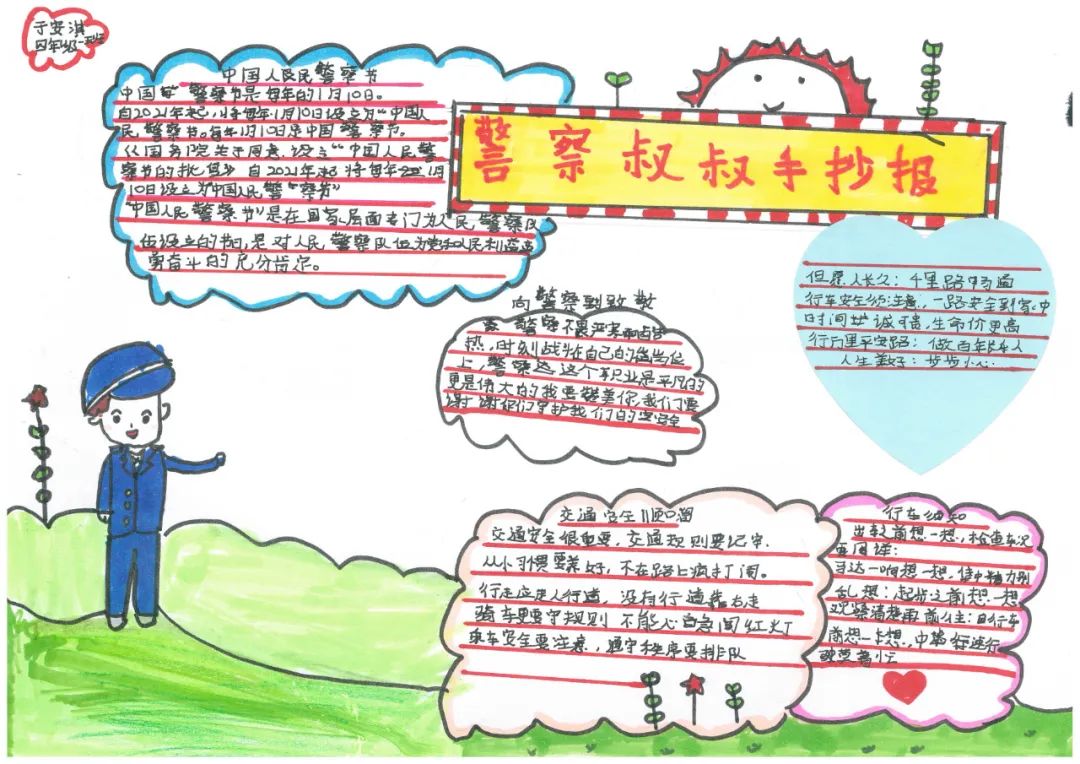 于安淇
四年级一班
警察叔叔手抄报
中国人民警察节
中国 警察节是每年的1月10日。
自2021年起,将每年1月10日设立为“中国人
民警察节。每年1月10日是中国警察节。
《国务院关于同意设立“中国人民警
察节的批复》自2021年起将每年 1月
10日设立为“中国人民警察节”
“中国人民警察节”是在国家层面专门为人民警察队
伍设立的节日,是对人民警察队伍为党和人民利益
勇奋斗的充分肯定。
向警察 致敬
警察不畏严寒 酷暑
热,时刻战在自己的 岗位
上,警察 这个职业是平凡的
更是伟大的我要赞美你,我们要
谢谢你们守护我们的 安全
但愿人长久:千里路畅通
行车安全须注意,一路安全到家中
时间 诚 贵,生命价更高
行万里平安路:做百年 人
人生 好:步步小心
交通安全顺口溜
交通安全很重要,交通规则要记牢.
从小习惯要养好,不在路上疯打闹。
行走应走人行道,没有行道靠右走
骑车更要守规则 不能心急闯红灯
乘车安全要注意,遵守秩序要排队
行车须知
出车前想一想,检查车况
要周详:
马达一响想一想,集中精力别
乱想:起步之前想一想
观察清楚再前往:自行车
前想一想,中 行